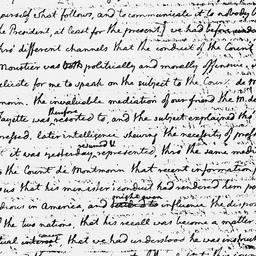 yourself what follows, and to communicate it to nobody b
he President, at least for the present] we had before
thro' different channels that the conduct of the Count
Moustier was politically and morally offensive.
elicate for me to speak on the subject to the Count de M
morin. the invaluable mediation of our friend the M. de
fayette was therefore resorted to, and the subject explained tho
pressed. later intelligence shewing the necessity of pres
it was resumed & yesterday represented, thro' the same medi
the Count de Montmorin that recent information
us that his minister's conduct had rendered him pe
dious in America, and might even influence the dispos
the two nations, that his recall was become a matter
tial that we had understood he was instruct